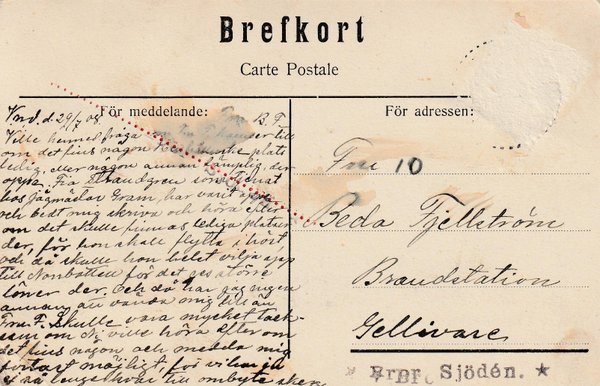 Brefkort
Carte Postale
För meddelande:
För adressen:
Vnd. d. 29/7 08
B. F.
Ville hermed fråga om till
om det fins någon plats
ledig, eller någon annan lämplig, der
oppe. Fru Strandgren som tjenat
hos Jägmästar Gram, har varit
och bedt mig skriva och höra efter
om det skulle finnas lediga platser
der, för hon skall flytta i höst
och då skulle hon helst vilja opp
till Norrbotten för det ges större
löner der. och då har jag ingen
annan att vända mig till än
Fru F. Skulle vara mycket tack-
sam om Ni ville höra efter om
det fins någon och meddela mig
fortast möjligt, för
så till ombyte
Fru 10
Beda Fjellström
Brandstation
Gellivare
* Brdr. Sjödén. *